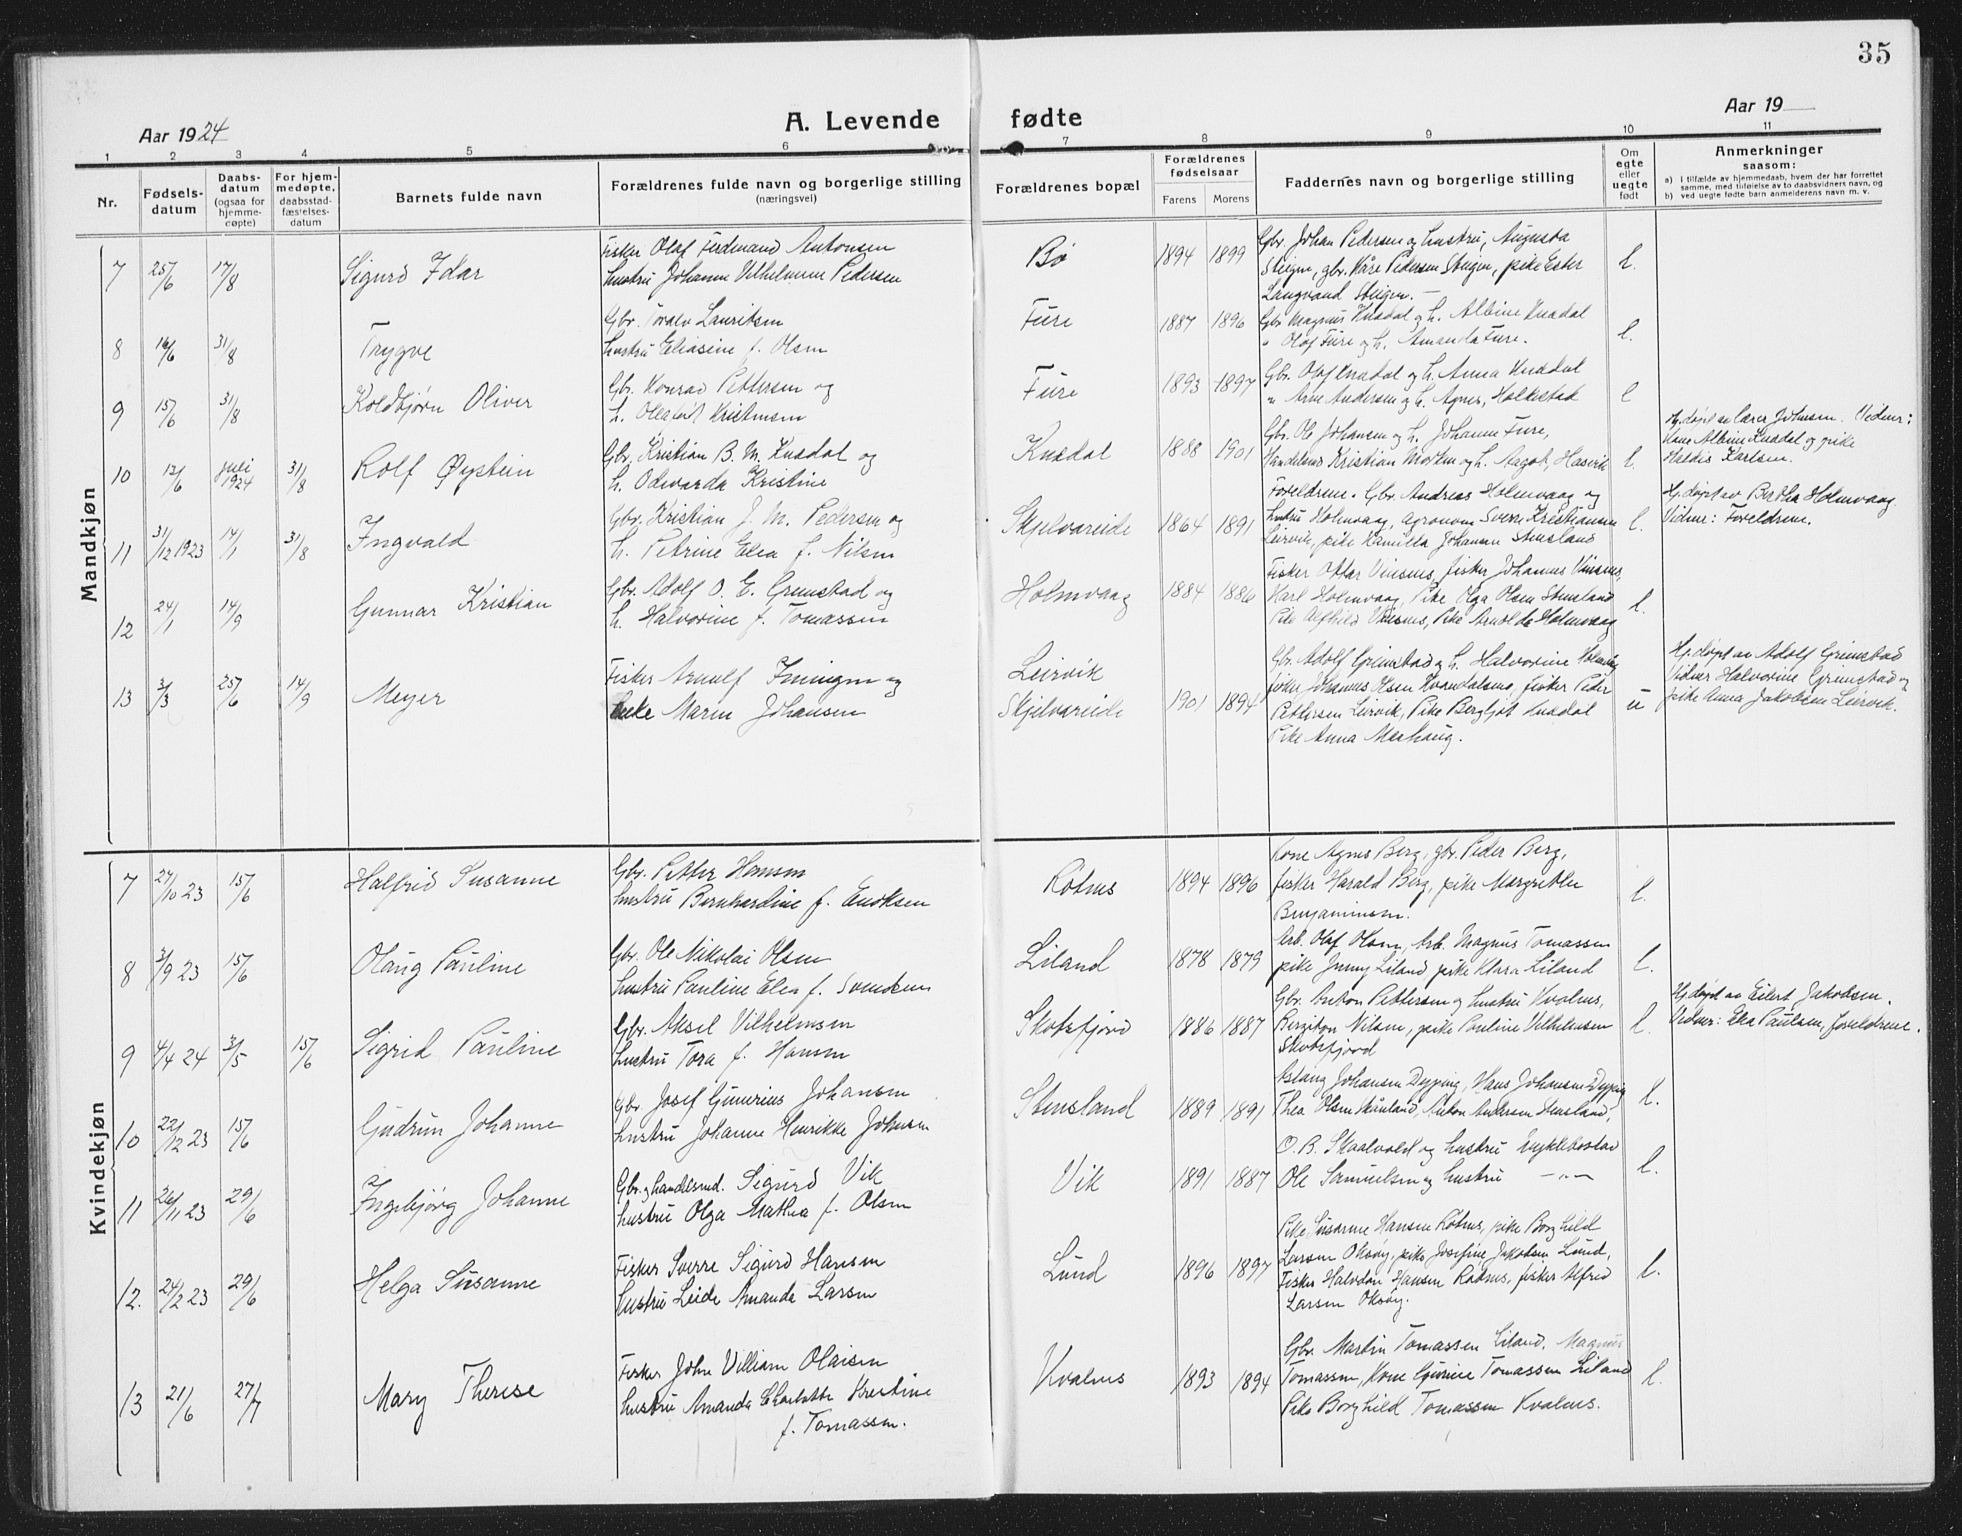 35
Aar 1924
A. Levende fødte
Aar 19
1 2 3 4 5 6 7 8 9 10 11
Nr.
Fødsels-datum
Daabs-datum (ogsaa for hjemme-døpte)
For hjem-medøpte, daabsstad-fæstelses-datum
Barnets fulde navn
Forældrenes fulde navn og borgerlige stilling (næringsvei)
Forældrenes bopæl
Forældrenes fødselsaar
Farens Morens
Faddernes navn og borgerlige stilling
Om egte eller uegte født
Anmerkninger saasom:
a) I tilfælde av hjemmedaab, hvem der har forrettet samme, med tilføielse av to daabsvidners navn, og
b) ved uegte fødte barn anmelderens navn m. v.
Mandkjøn
7 25/6 17/8 Sigurd Idar
Fisker Olaf Ferdinand Antonsen
hustru Johanne Vilhelmine Pedersen
Bø 1894 1899
Gbr. Johan Pedersen og hustru, Augusta
Steigen, gbr. Kåre Pedersen Steigen, pike Ester
Langvand Steigen.
8 16/6 31/8 Trygve
Gbr. Toralv Lauritsen
hustru Eliasine f. Olsen
Füre 1887 1896
Gbr Magnus Knædal og h. Albine Knædal
" Olaf Füre og h. Amanda Füre.
9 15/6 31/8 Koldbjørn Oliver
Gbr. Konrad Pettersen og
Füre 1893 1897
Gbr. Olaf Knædal og h. Anna Knædal
" Arne Andersen og h. Agnes, Holkestad
10 12/6 juli 1924 31/8 Rolf Øystein
Gbr. Kristian B. M. Knædal og
h. Odevarda Kristine
Knædal 1888 1901 l.
Gbr. Ole Johansen og h. Johanne Füre,
Kristian Morten og h. Aagot,
Hj.døpt av lærer Johnsen. Vidner:
Kone Albine Knædal og pike
Haldis Karlsen.
11 31/12 1923 14/1 31/8 Ingvald
Gbr. Kristian J. M. Pedersen og
h. Petrine Elea f. Nilsen
Skjelvareide 1864 1891 l.
Foreldrene. Gbr. Andreas Holmvaag og
hustru Holmvaag, Agronom Sverre Kristiansen
Leirvik, pike Kamilla Johansen Stensland
Hj.døpt av Bertha Holmvaag.
Vidner: Foreldrene.
12 24/1 14/9 Gunnar Kristian
Gbr. Adolf O. E. Grimstad og
h. Halvorine f. Tomassen
Holmvaag 1884 1886 l.
Fisker Ottar Vinsnes, fisker Johannes Vinsnes,
Karl Holmvaag, Pike Olga Olsen Stensland
Pike Alfhild Vinsnes, Pike Arnolda Holmvaag
13 3/3 25/6 14/9 Meyer
Fisker Arnulf og
Marin Johansen
Leirvik
Skjelvareide 1901 1894 u
Gbr. Adolf Grimstad og h. Halvorine Holmvåg
fisker Johannes Olsen, fisker Peder
Pettersen Leirvik, Pike Bergljot Knædal
Pike Anna Mærhaug.
Hj.døpt av Adolf Grimstad
Vidner Halvorine Grimstad og
pike Anna Jakobsen Leirvik.
Kvindekjøn
7 27/10 23 15/6 Halfrid Susanne
Gbr. Petter Hansen
hustru Bernhardine f. Enoksen
Røtnes 1894 1896 l.
Kone Agnes Berg, gbr. Peder Berg,
fisker Harald Berg, pike Margrethe
Benjaminsen.
8 3/9 23 15/6 Olaug Pauline
Gbr. Ole Nikolai Olsen
hustru Pauline Elea f. Svendsen
Liland 1878 1879 l.
Arb. Olaf Olsen, Arb. Magnus Tomassen
pike Jenny Liland pike Klara Liland
9 4/4 24 3/5 15/6 Sigrid Pauline
Gbr. Aksel Vilhelmsen
hustru Tora f. Hansen
Skotsfjord 1886 1887 l.
Gbr. Anton Pettersen og hustru Kvalnes,
Nilsen, pike Pauline Vilhelmsen
Skotsfjord
Hj.døpt av Eilert Jakobsen.
Vidner: Elea Paulsen, foreldrene.
10 22/12 23 15/6 Gudrun Johanne
Gbr Josef Gunerius Johansen
hustru Johanne Henrikke Johnsen
Stensland 1889 1891 l.
Aslaug Johansen Dypping, Hans Johansen Dypping
Thea Olsen Skånland, Anton Andersen Stensland,
11 26/11 23 29/6 Ingebjørg Johanne
Gbr. og handelsmd. Sigurd Vik
hustru Olga Mathea f. Olsen
Vik 1891 1887 l.
O. B. Skaalvold og hustru Myklebostad
Ole Samuelsen og hustru — " —
12. 24/2 23 29/6 Helga Susanne
Fisker Sverre Sigurd Hansen
hustru Leide Amanda Larsen
Lund 1896 1897 l.
Pike Susanne Hansen Røtnes, pike Borghild
Larsen Oksøy, pike Josefine Jakobsen Lund,
Fisker Halvdan Hansen Røtnes, fisker Alfred
Larsen Oksøy.
13 21/6 27/7 Mary Therese
Fisker John Villiam Olaisen
hustru Amanda Charlotte Kristine
f. Tomassen.
Kvalnes 1893 1894 l.
Gbr. Martin Tomassen Liland, Magnus
Tomassen, Kone Gurine Tomassen Liland
Pike Borghild Tomassen Kvalnes.